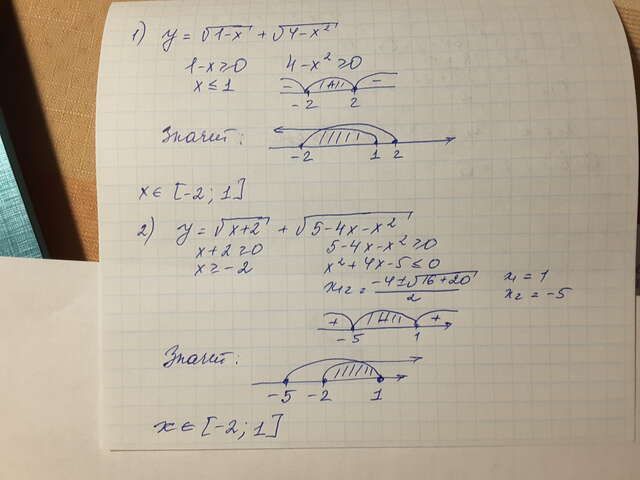 1) y = √1-x + √4-x²
1-x≥0 4-x²≥0
x≤1
- -2 + 2 -
Значит: -2 1 2
x ∈ [-2; 1]
2) y = √x+2 + √5-4x-x²
x+2≥0 5-4x-x²≥0
x≥-2 x²+4x-5≤0
x₁,₂ = (-4±√16+20)/2 x₁ = 1
x₂ = -5
+ -5 - 1 +
Значит: -5 -2 1
x ∈ [-2; 1]